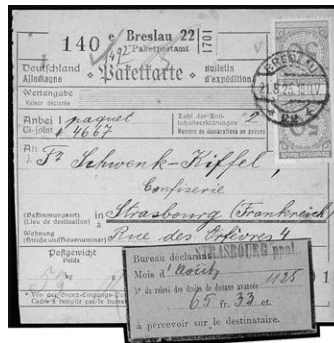 140 e Breslau 22
Paketpostamt
1701
1492
Deutschland
Allemagne
Paketkarte
Bulletin
d'expédition
Wertangabe
Valeur déclarée
Anbei 1 paquet
Ci-joint # 4667
Zahl der Zoll-
inhaltserklärungen 2
Numéro de déclarations en douane
BRESLAU
22
An
À Fr Schwenk-Kiffel,
Confiserie
(Bestimmungsort)
(Lieu de destination)
in
à Strasbourg (Frankreich)
Wohnung
(Straße und Hausnummer) Rue des Orfèvres 4
Postgewicht
Poids
Bureau déclarant STRASBOURG ppal.
Mois d'Août
N° du relevé des droits de douane avancés 1125
65 fr. 33 ct.
à percevoir sur le destinataire.